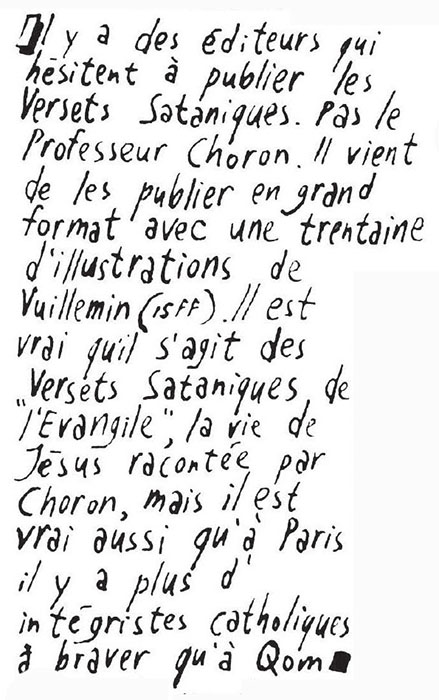 Il y a des éditeurs qui
hésitent à publier les
Versets Sataniques. Pas le
Professeur Choron. Il vient
de les publier en grand
format avec une trentaine
d'illustrations de
Vuillemin (15FF). Il est
vrai qu'il s'agit des
"Versets Sataniques de
l'Evangile", la vie de
Jésus racontée par
Choron, mais il est
vrai aussi qu'à Paris
il y a plus d'
intégristes catholiques
à braver qu'à Qom